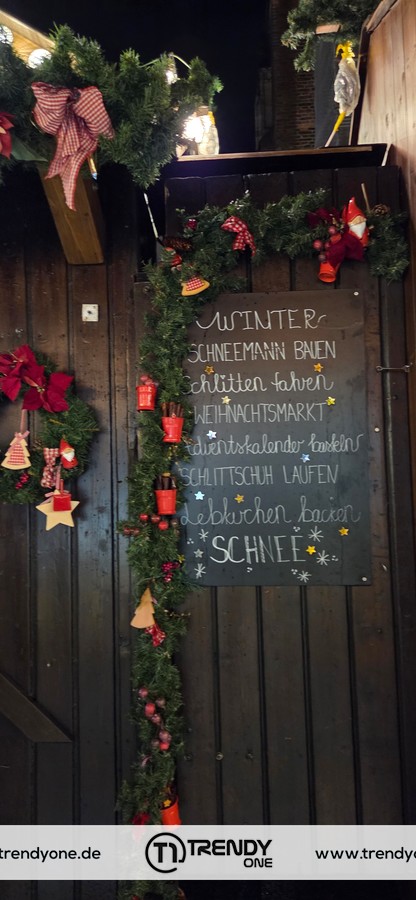 WINTER
SCHNEEMANN BAUEN
Schlitten fahren
WEIHNACHTSMARKT
Adventskalender basteln
SCHLITTSCHUH LAUFEN
Lebkuchen backen
SCHNEE
trendyone.de
TRENDY
ONE
www.trendyo